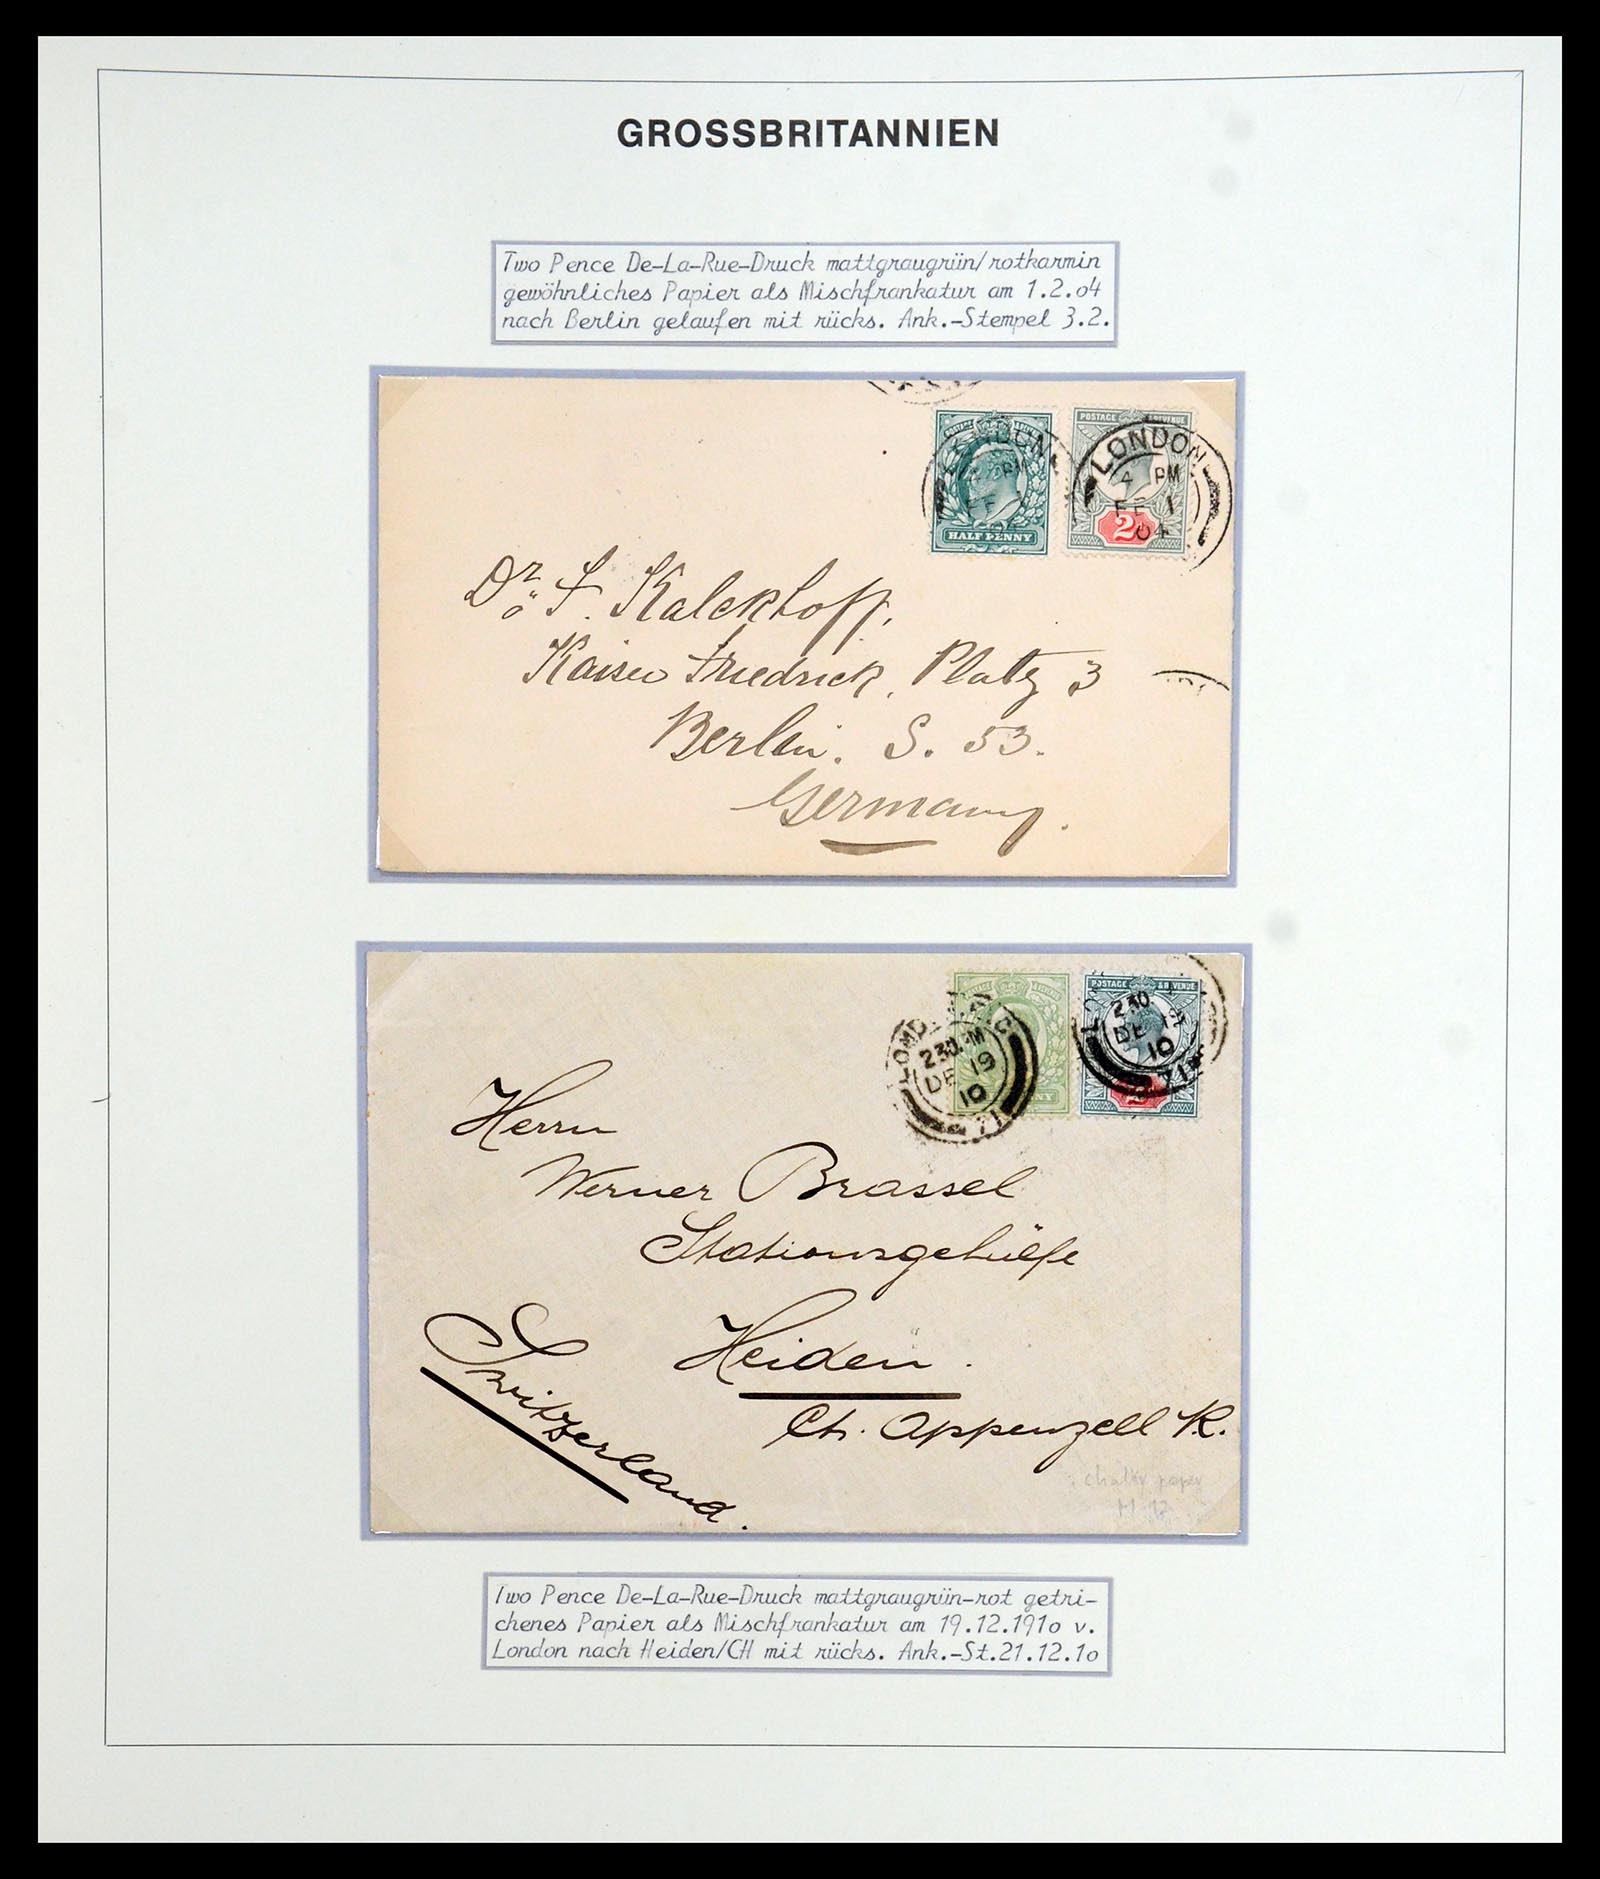 GROSSBRITANNIEN
Two Pence De-La-Rue-Druck mattgraugrün/rotkarmin
gewöhnliches Papier als Mischfrankatur am 1.2.o4
nach Berlin gelaufen mit rücks. Ank.-Stempel 3.2.
POSTAGE & REVENUE
HALF PENNY
LONDON
4 PM
FE 1
04
POSTAGE & REVENUE
2
LONDON
4 PM
FE 1
04
Dr. F. Kalckhoff,
Kaiser Friedrick, Platz 3
Berlin. S. 53.
Germany.
LONDON
230 PM
DE 19
10
71
POSTAGE & REVENUE
2
230
DE 19
10
71
Herrn
Werner Brassel
Stationsgehülfe
Heiden.
Ct. Appenzell R.
Switzerland.
chalky paper
M 12
Two Pence De-La-Rue-Druck mattgraugrün-rot getri-
chenes Papier als Mischfrankatur am 19.12.191o v.
London nach Heiden/CH mit rücks. Ank.-St.21.12.1o